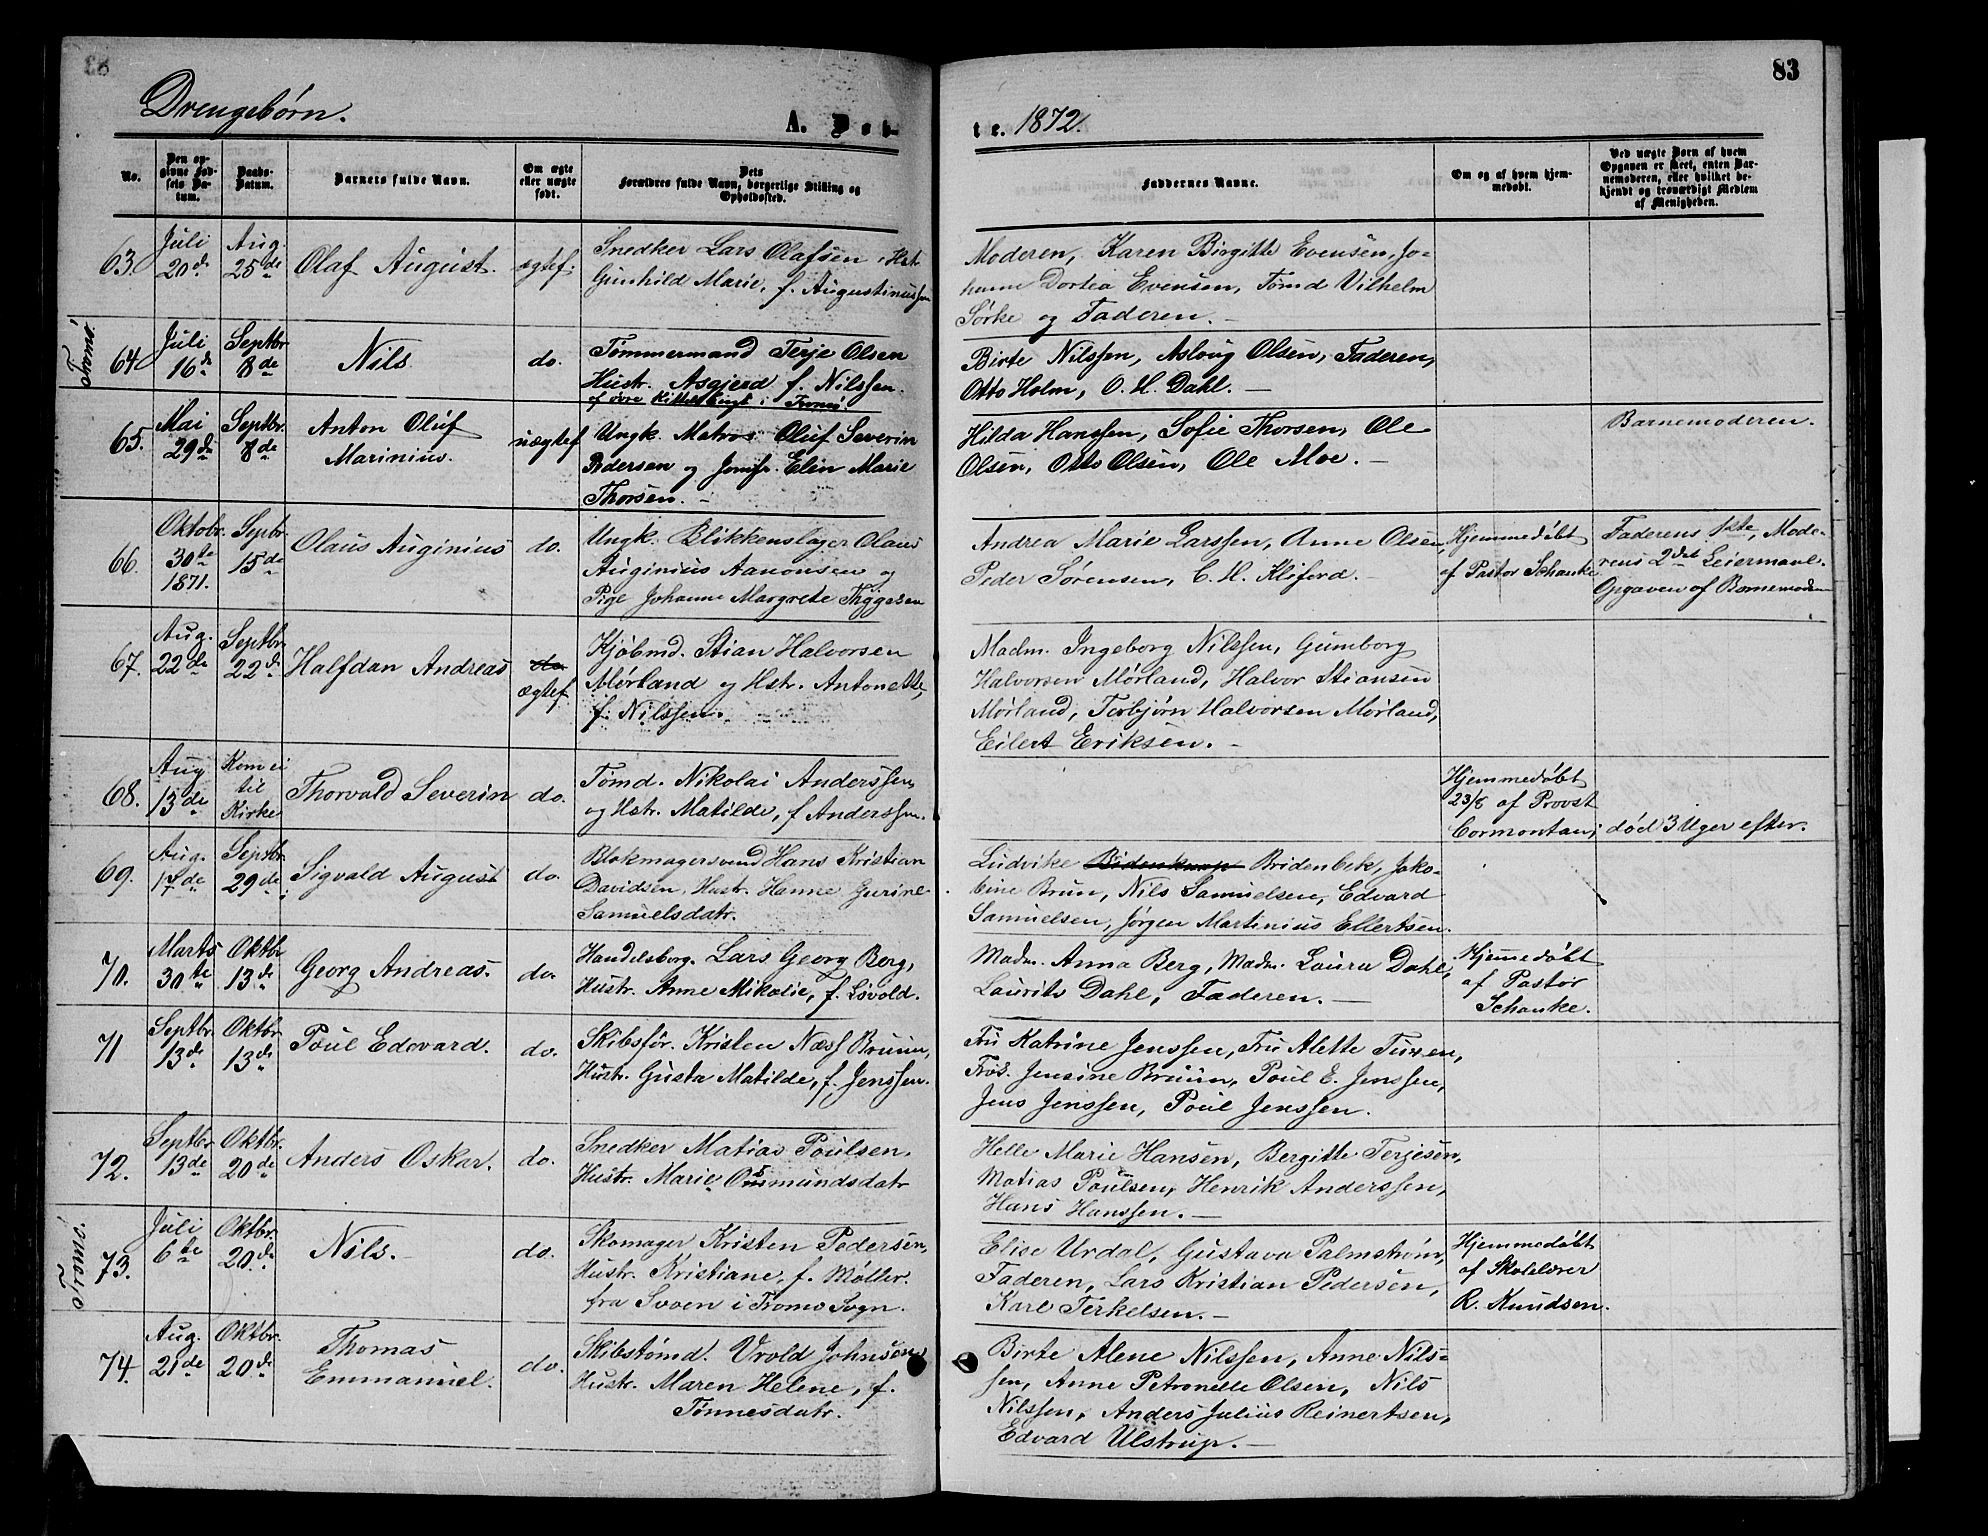 83
Drengebørn.
A. Døb-
te. 1872.
No.
Den op-
givne Fød-
sels Da-
tum.
Daabs-
Datum.
Barnets fulde Navn.
Om ægte
eller uægte
født.
Dets
Forældres fulde Navn, borgerlige Stilling og
Opholdssted.
Faddernes Navne.
Om og af hvem hjem-
medøbt.
Ved uægte Børn af hvem
Opgaven er skeet, enten Bar-
nemoderen, eller hvilket be-
kjendt og troværdigt Medlem
af Menigheden.
63.
Juli
20de
Aug.
25de
Olaf August.
ægtef.
Snedker Lars Olafsen, Hst.
Gunhild Marie, f. Augustinussen
Moderen, Karen Birgitte Evensen, Jo-
hanne Dortea Evensen, Tømd Vilhelm
Sørke og Faderen. —
Tromø
64
Juli
16de
Septbr
8de
Nils
do.
Tømmermand Terje Olsen
Hustr. Asgjerd f. Nilssen.
af øvre Kittelsbugt i Tromø.
Birte Nilssen, Aslaug Olsen, Faderen,
Otto Holm, O. H. Dahl. —
65.
Mai
29de
Septbr.
8de
Anton Oluf
Marinius.
uægtef
Ungk. Matros Oluf Severin
Pedersen og Jomfr. Elin Marie
Thorsen. —
Hilda Hanssen, Sofie Thorsen, Ole
Olsen, Otto Olsen, Ole Moe. —
Barnemoderen.
66.
Oktobr.
30te
1871.
Septbr.
15de
Olaus Auginius
do.
Ungk. Blikkenslager Olaus
Auginius Aanonsen og
Pige Johanne Margrete Thygesen
Andrea Marie Larssen, Anne Olsen,
Peder Sørensen, C. H. Kliford. —
Hjemmedøbt
af Pastor Schanke
Faderens 1ste, Mode-
rens 2det Leiermaal.
Opgaven af Barnemoderen
67.
Aug.
22de
Septbr.
22de
Halfdan Andreas
do
ægtef.
Kjøbmd. Stian Halvorsen
Mørland og Hstr. Antonette,
f. Nilssen.
Madm. Ingeborg Nilssen, Gunborg
Halvorsen Mørland, Halvor Stiansen
Mørland, Torbjørn Halvorsen Mørland,
Eilert Eriksen. —
68.
Aug
13de
Kom ei
til
Kirke
Thorvald Severin
do.
Tømd. Nikolai Anderssen,
og Hstr. Matilde, f Anderssen.
Hjemmedøbt
23/8 af Provst
Cormontan;
død 3 Uger efter.
69.
Aug.
17de
Septbr.
29de
Sigvald August
do.
Blokmagersvend Hans Kristian
Davidsen, Hustr. Hanne Gurine
Samuelsdatr.
Ludvike Bridenbek, Jako-
bine Brun, Nils Samuelsen, Edvard
Samuelsen, Jørgen Martinius Ellertsen.
70.
Marts
30te
Oktbr
13de
Georg Andreas.
do.
Handelsborg. Lars Georg Berg,
Hustr. Anne Mikalie, f. Løvold.
Madm. Anna Berg, Madm. Laura Dahl,
Laurits Dahl, Faderen. —
Hjemmedøbt
af Pastor
Schanke.
71
Septbr.
13de
Oktbr.
13de
Poul Edevard.
do.
Skibsfør. Kristen Næss Bruun,
Hustr. Gusta Matilde, f. Jenssen.
Fru Katrine Jenssen, Fru Alette Tuxen,
Frøk. Jensine Bruun, Poul E. Jenssen,
Jens Jenssen, Poul Jenssen.
72.
Septbr.
13de
Oktbr.
20de
Anders Oskar.
do.
Snedker Matias Poulsen,
Hustr. Marie Osmundsdatr
Helle Marie Hansen, Bergitte Terjesen,
Matias Poulsen, Henrik Anderssen,
Hans Hanssen. —
Tromø.
73.
Juli
6te
Oktbr.
20de
Nils. —
do.
Skomager Kristen Pedersen,
Hustr. Kristiane, f. Møller.
fra Svoen i Tromø Sogn.
Elise Urdal, Gustava Palmstrøm,
Faderen, Lars Kristian Pedersen,
Karl Terkelsen. —
Hjemmedøbt
af Skolelærer
R. Knudsen.
74.
Aug.
21de
Oktbr.
20de
Thomas
Emmanuel.
do.
Skibstømd. Vrold Johnsen,
Hustr. Maren Helene, f.
Tønnesdatr.
Birte Alene Nilssen, Anne Nils-
sen, Anne Petronelle Olsen, Nils
Nilssen, Anders Julius Reinertsen,
Edvard Ulstrup. —